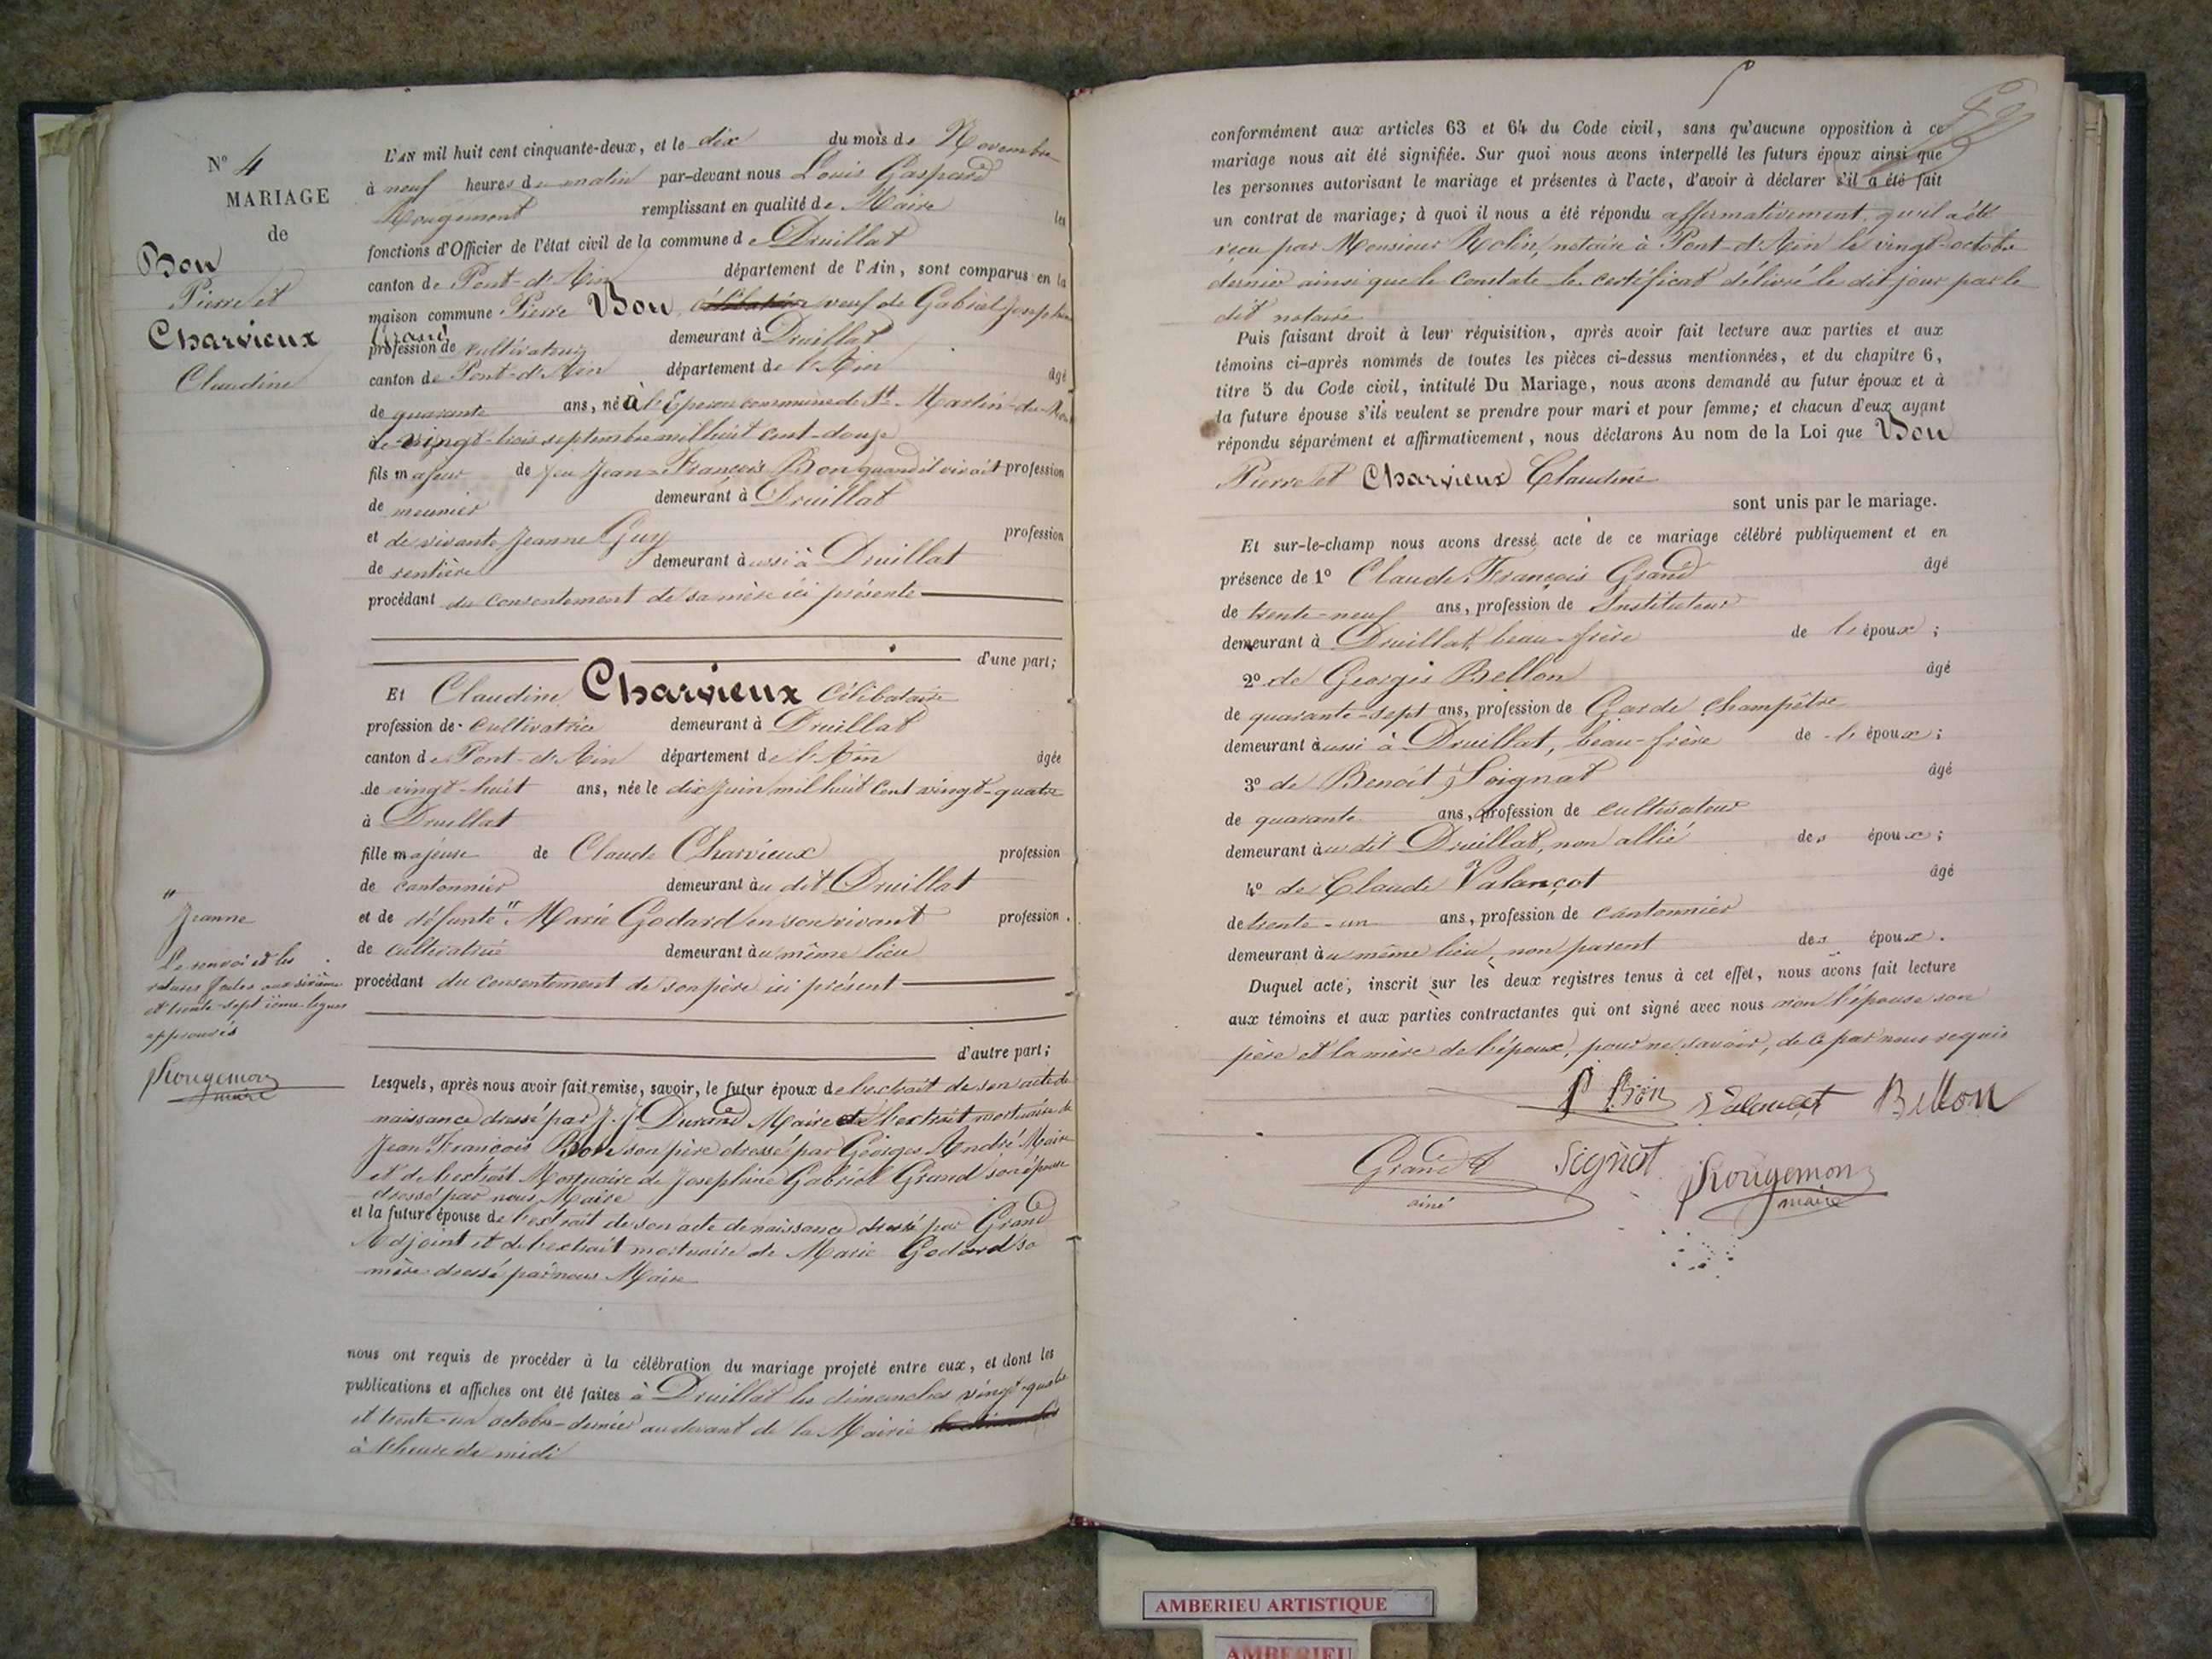 N° 4
MARIAGE
de
Bon
Pierre et
Charvieux
Claudine
L'AN mil huit cent cinquante-deux, et le dix du mois de Novembre
à neuf heures du matin par-devant nous Louis Gaspard
Rougemont remplissant en qualité de Maire les
fonctions d'Officier de l'état civil de la commune de Druillat
canton de Pont-d'Ain département de l'Ain, sont comparus en la
maison commune Pierre Bon, célibataire veuf de Gabriel Josephine
Grand
profession de cultivateur demeurant à Druillat
canton de Pont-d'Ain département de l'Ain âgé
de quarante ans, né à commune de St Martin-du-
le vingt-trois septembre mil huit cent-douze
fils majeur de feu Jean-François Bon quand il vivait profession
de meunier demeurant à Druillat
et de vivante Jeanne Guy profession
de rentière demeurant aussi à Druillat
procédant du consentement de sa mère ici présente
d'une part;
Et Claudine Charvieux Célibataire
profession de cultivatrice demeurant à Druillat
canton de Pont-d'Ain département de l'Ain âgée
de vingt-huit ans, née le dix Juin mil huit cent vingt-quatre
à Druillat
fille majeure de Claude Charvieux profession
de cantonnier demeurant au dit Druillat
et de défunte " Marie Godard en son vivant profession
de cultivatrice demeurant au même lieu
procédant du consentement de son père ici présent
d'autre part;
" Jeanne
Le renvoi et les
ratures faites aux sixième
et trente-septième lignes
approuvés
Rougemont
maire
Lesquels, après nous avoir fait remise, savoir, le futur époux de l'extrait de son acte de
naissance dressé par J. J. Durand Maire et l'extrait mortuaire de
Jean François Bon son père dressé par Georges André Maire
et de l'extrait Mortuaire de Josephine Gabriel Grand son épouse
dressé par nous Maire
et la future épouse de l'extrait de son acte de naissance dressé par Grand
Adjoint et de l'extrait mortuaire de Marie Godard sa
mère dressé par nous Maire
nous ont requis de procéder à la célébration du mariage projeté entre eux, et dont les
publications et affiches ont été faites à Druillat les dimanches vingt-quatre
et trente-un octobre-dernier au devant de la Mairie
à l'heure de midi
conformément aux articles 63 et 64 du Code civil, sans qu'aucune opposition à ce
mariage nous ait été signifiée. Sur quoi nous avons interpellé les futurs époux ainsi que
les personnes autorisant le mariage et présentes à l'acte, d'avoir à déclarer s'il a été fait
un contrat de mariage; à quoi il nous a été répondu affirmativement, qu'il a été
reçu par Monsieur Rolin, notaire à Pont-d'Ain le vingt-octobre
dernier ainsi que le constate le certificat délivré le dit jour par le
dit notaire
Puis faisant droit à leur réquisition, après avoir fait lecture aux parties et aux
témoins ci-après nommés de toutes les pièces ci-dessus mentionnées, et du chapitre 6,
titre 5 du Code civil, intitulé Du Mariage, nous avons demandé au futur époux et à
la future épouse s'ils veulent se prendre pour mari et pour femme; et chacun d'eux ayant
répondu séparément et affirmativement, nous déclarons Au nom de la Loi que Bon
Pierre et Charvieux Claudine
sont unis par le mariage.
Et sur-le-champ nous avons dressé acte de ce mariage célébré publiquement et en
présence de 1° Claude François Grand âgé
de trente-neuf ans, profession de Instituteur
demeurant à Druillat, beau-frère de l'époux;
2° de Georges Bellon âgé
de quarante-sept ans, profession de Garde champêtre
demeurant aussi à Druillat, beau-frère de l'époux;
3° de Benoît Soignat âgé
de quarante ans, profession de cultivateur
demeurant au dit Druillat, non allié des époux;
4° de Claude Valançot âgé
de trente-un ans, profession de cantonnier
demeurant au même lieu, non parent des époux.
Duquel acte, inscrit sur les deux registres tenus à cet effet, nous avons fait lecture
aux témoins et aux parties contractantes qui ont signé avec nous non l'épouse son
père et la mère de l'époux, pour ne savoir, de ce par nous requis
P Bon Valançot Bellon
Grand
ainé
Signat
Rougemont
maire
AMBERIEU ARTISTIQUE
AMBERIEU